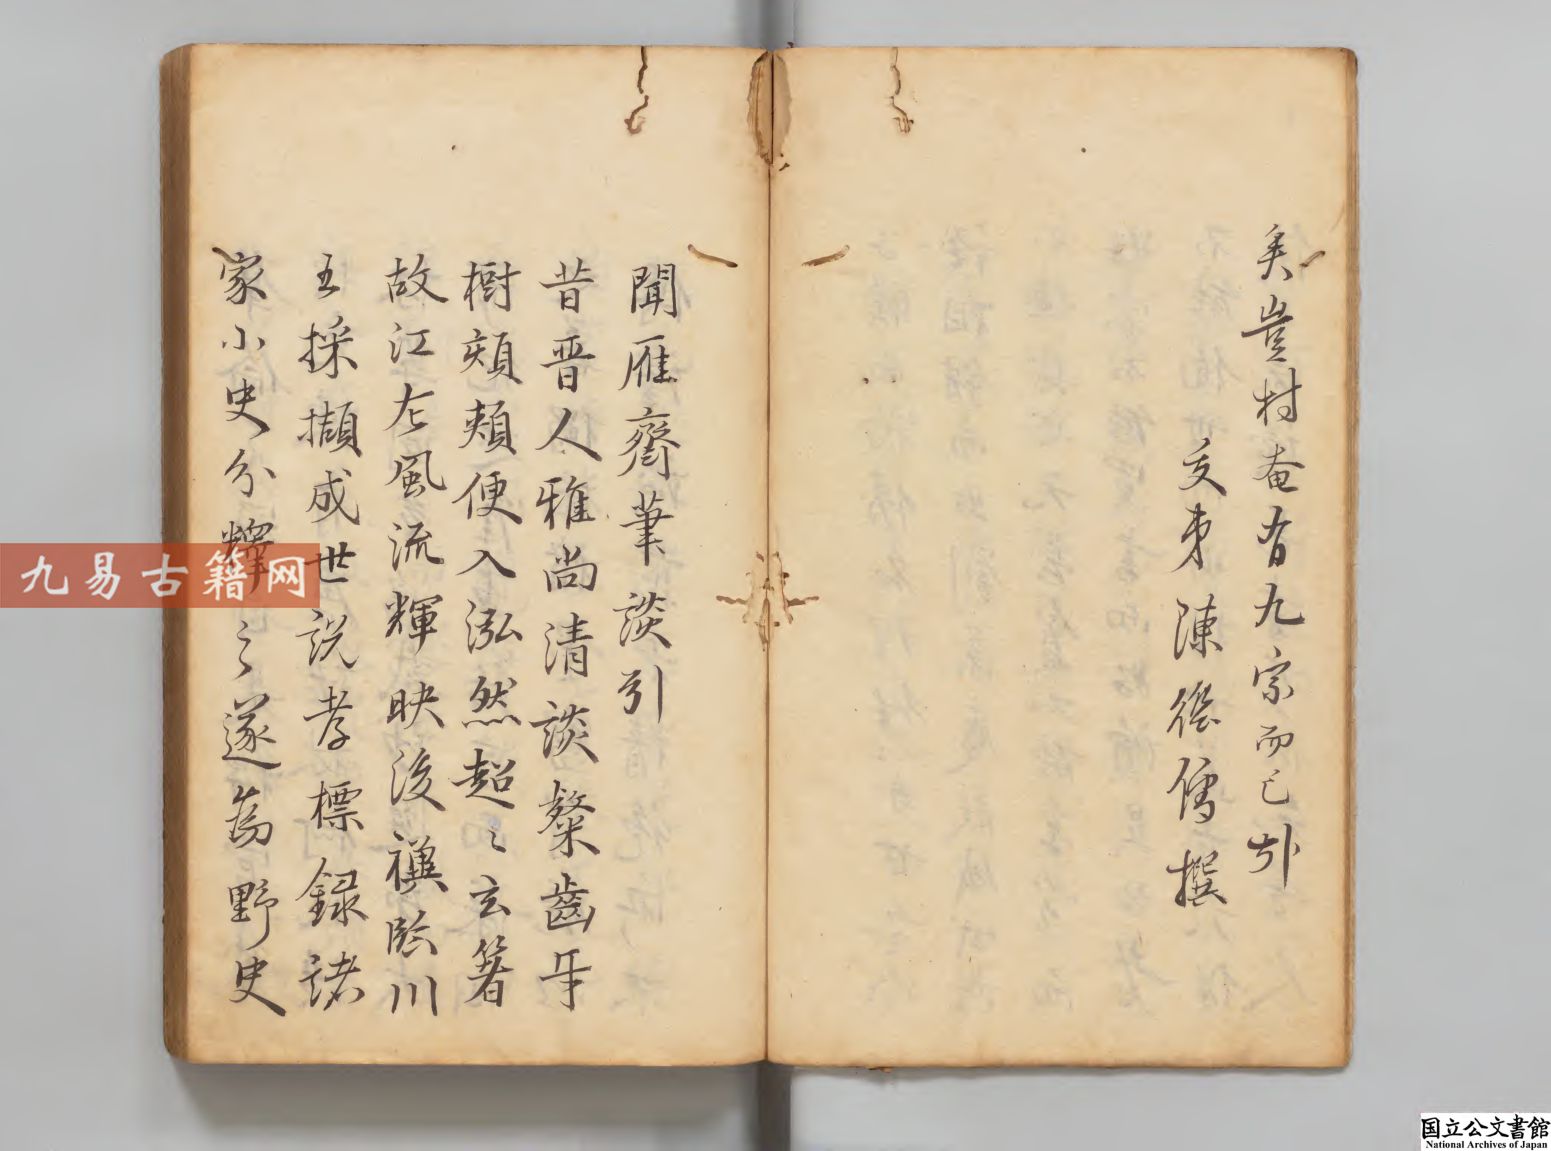 矣豈村菴有九宗而已哉
友弟陳從儒撰
聞雁齋筆談引
昔晋人雅尚清談粲齒牙
樹頰頰便入泓然超〻玄箸
故江左風流輝映後禩臨川
王採擷成世説孝標録諸
家小史分釋之遂為野史
九易古籍网
国立公文書館
National Archives of Japan